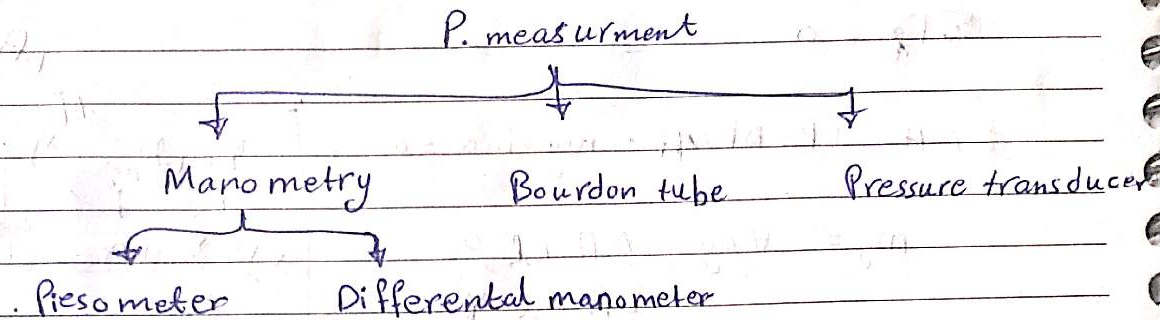 P. measurment
Manometry Bourdon tube Pressure transducer
. Piesometer Differental manometer